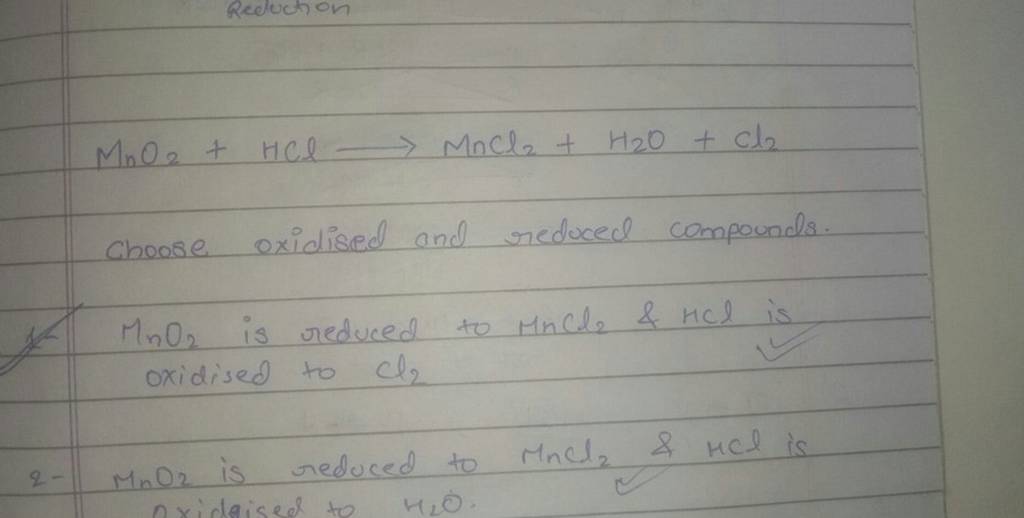 Reduction
MnO2 + HCl → MnCl2 + H2O + Cl2
Choose oxidised and reduced compounds.
1- MnO2 is reduced to MnCl2 & HCl is
oxidised to Cl2
2- MnO2 is reduced to MnCl2 & HCl is
oxidgised to H2O.